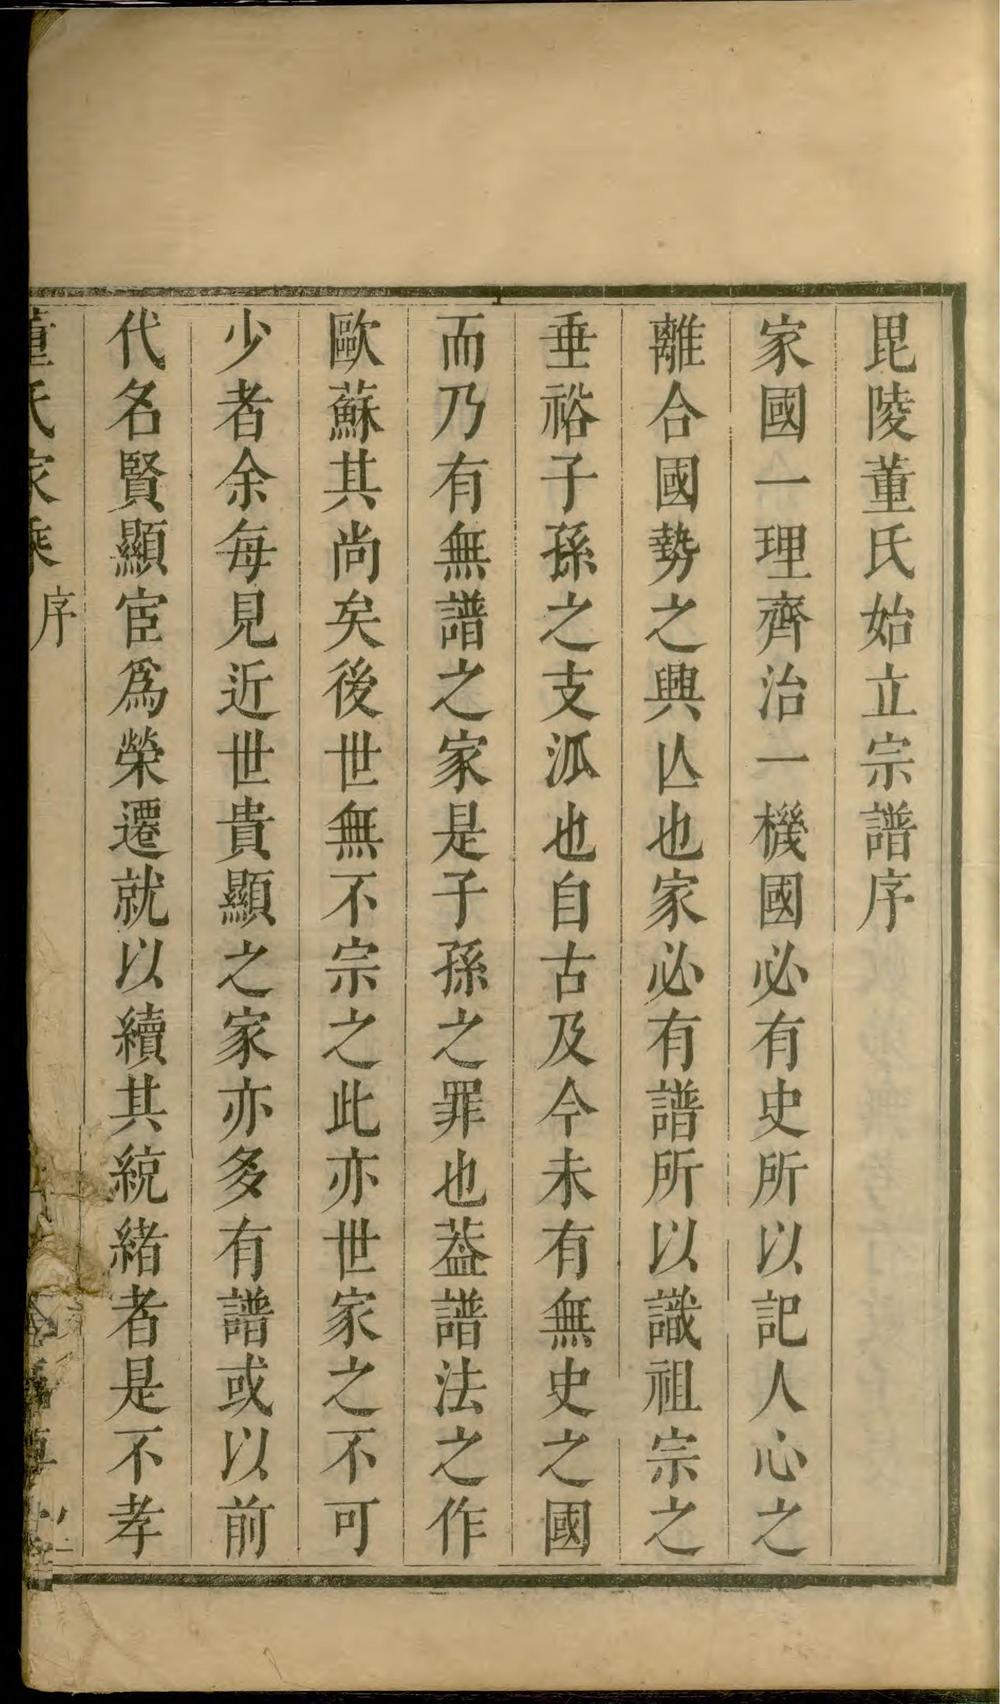 毘陵董氏始立宗譜序
家國一理齊治一機國必有史所以記人心之
離合國勢之興亾也家必有譜所以識祖宗之
垂裕子孫之支泒也自古及今未有無史之國
而乃有無譜之家是子孫之罪也葢譜法之作
歐蘇其尚矣後世無不宗之此亦世家之不可
少者余每見近世貴顯之家亦多有譜或以前
代名賢顯宦爲榮遷就以續其統緒者是不孝
董氏家乘 序